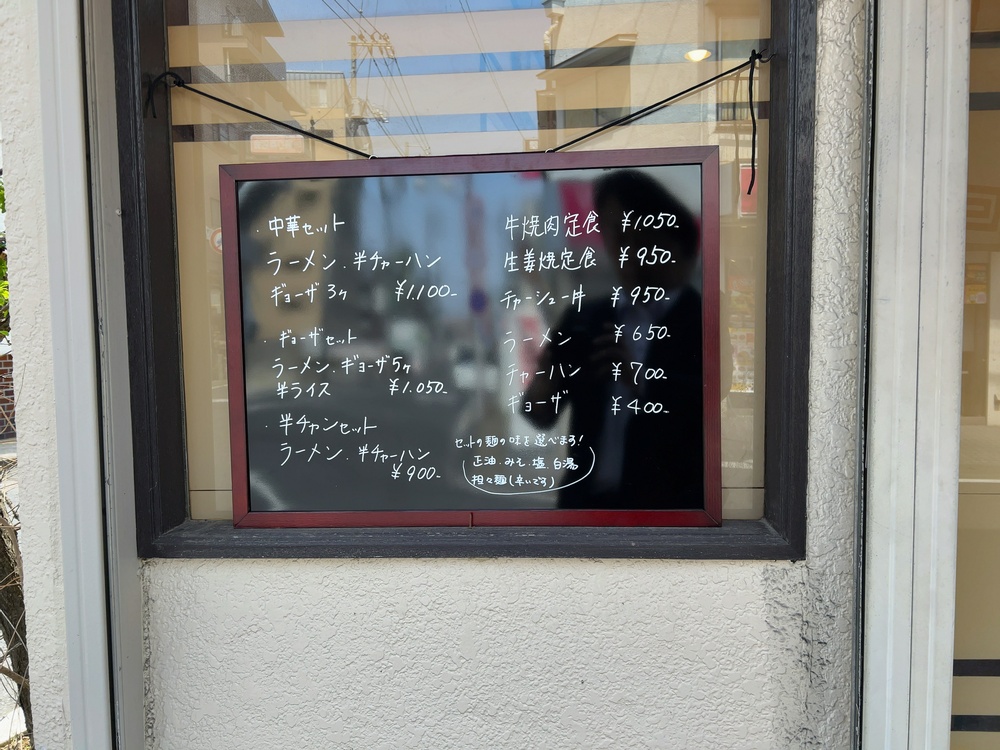 ・中華セット
ラーメン．半チャーハン
ギョーザ3ヶ ¥1.100-
・ギョーザセット
ラーメン．ギョーザ5ヶ
半ライス ¥1.050-
・半チャンセット
ラーメン．半チャーハン
¥900-
牛焼肉定食 ¥1.050-
生姜焼定食 ¥950-
チャーシュー丼 ¥950-
ラーメン ¥650-
チャーハン ¥700-
ギョーザ ¥400-
セットの麺の味を選べます!
正油．みそ．塩．白湯
担々麺(辛いです)